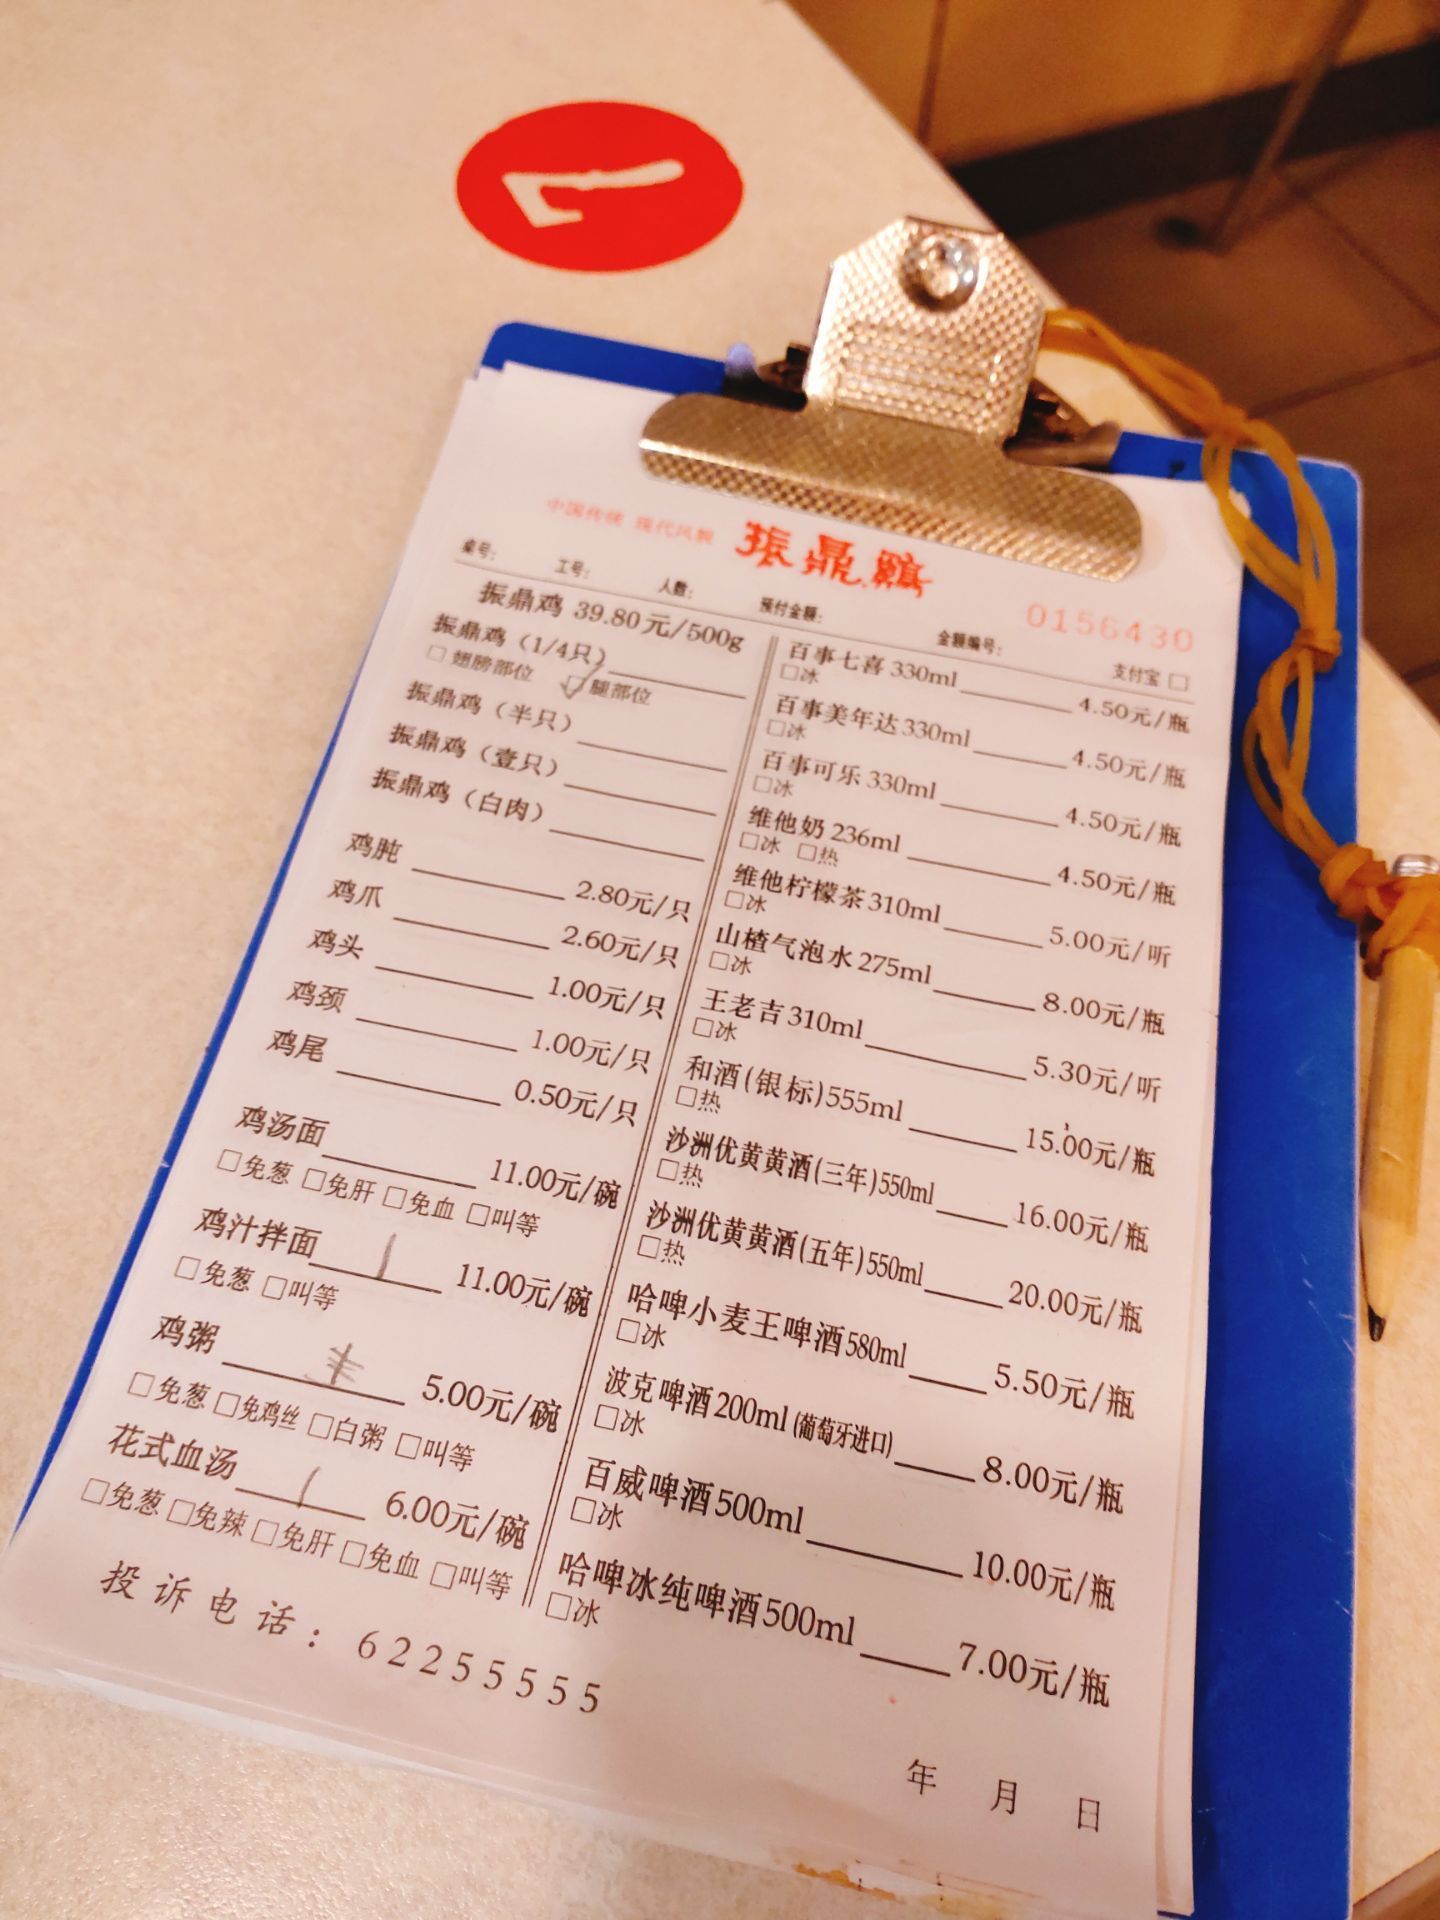 中国传统 现代风貌 振鼎鷄
0156430
桌号: 工号: 人数: 预付金额: 金额编号: 支付宝 □
振鼎鸡 39.80元/500g
振鼎鸡（1/4只）
□ 翅膀部位 □ 腿部位
振鼎鸡（半只）
振鼎鸡（壹只）
振鼎鸡（白肉）
鸡肫 2.80元/只
鸡爪 2.60元/只
鸡头 1.00元/只
鸡颈 1.00元/只
鸡尾 0.50元/只
鸡汤面 11.00元/碗
□免葱 □免肝 □免血 □叫等
鸡汁拌面 1 11.00元/碗
□免葱 □叫等
鸡粥 5.00元/碗
□免葱 □免鸡丝 □白粥 □叫等
花式血汤 1 6.00元/碗
□免葱 □免辣 □免肝 □免血 □叫等
百事七喜 330ml 4.50元/瓶
□冰
百事美年达 330ml 4.50元/瓶
□冰
百事可乐 330ml 4.50元/瓶
□冰
维他奶 236ml 4.50元/瓶
□冰 □热
维他柠檬茶 310ml 5.00元/听
□冰
山楂气泡水 275ml 8.00元/瓶
□冰
王老吉 310ml 5.30元/听
□冰
和酒(银标)555ml 15.00元/瓶
□热
沙洲优黄黄酒(三年)550ml 16.00元/瓶
□热
沙洲优黄黄酒(五年)550ml 20.00元/瓶
□热
哈啤小麦王啤酒580ml 5.50元/瓶
□冰
波克啤酒200ml(葡萄牙进口) 8.00元/瓶
□冰
百威啤酒500ml 10.00元/瓶
□冰
哈啤冰纯啤酒500ml 7.00元/瓶
□冰
投诉电话: 62255555
年 月 日